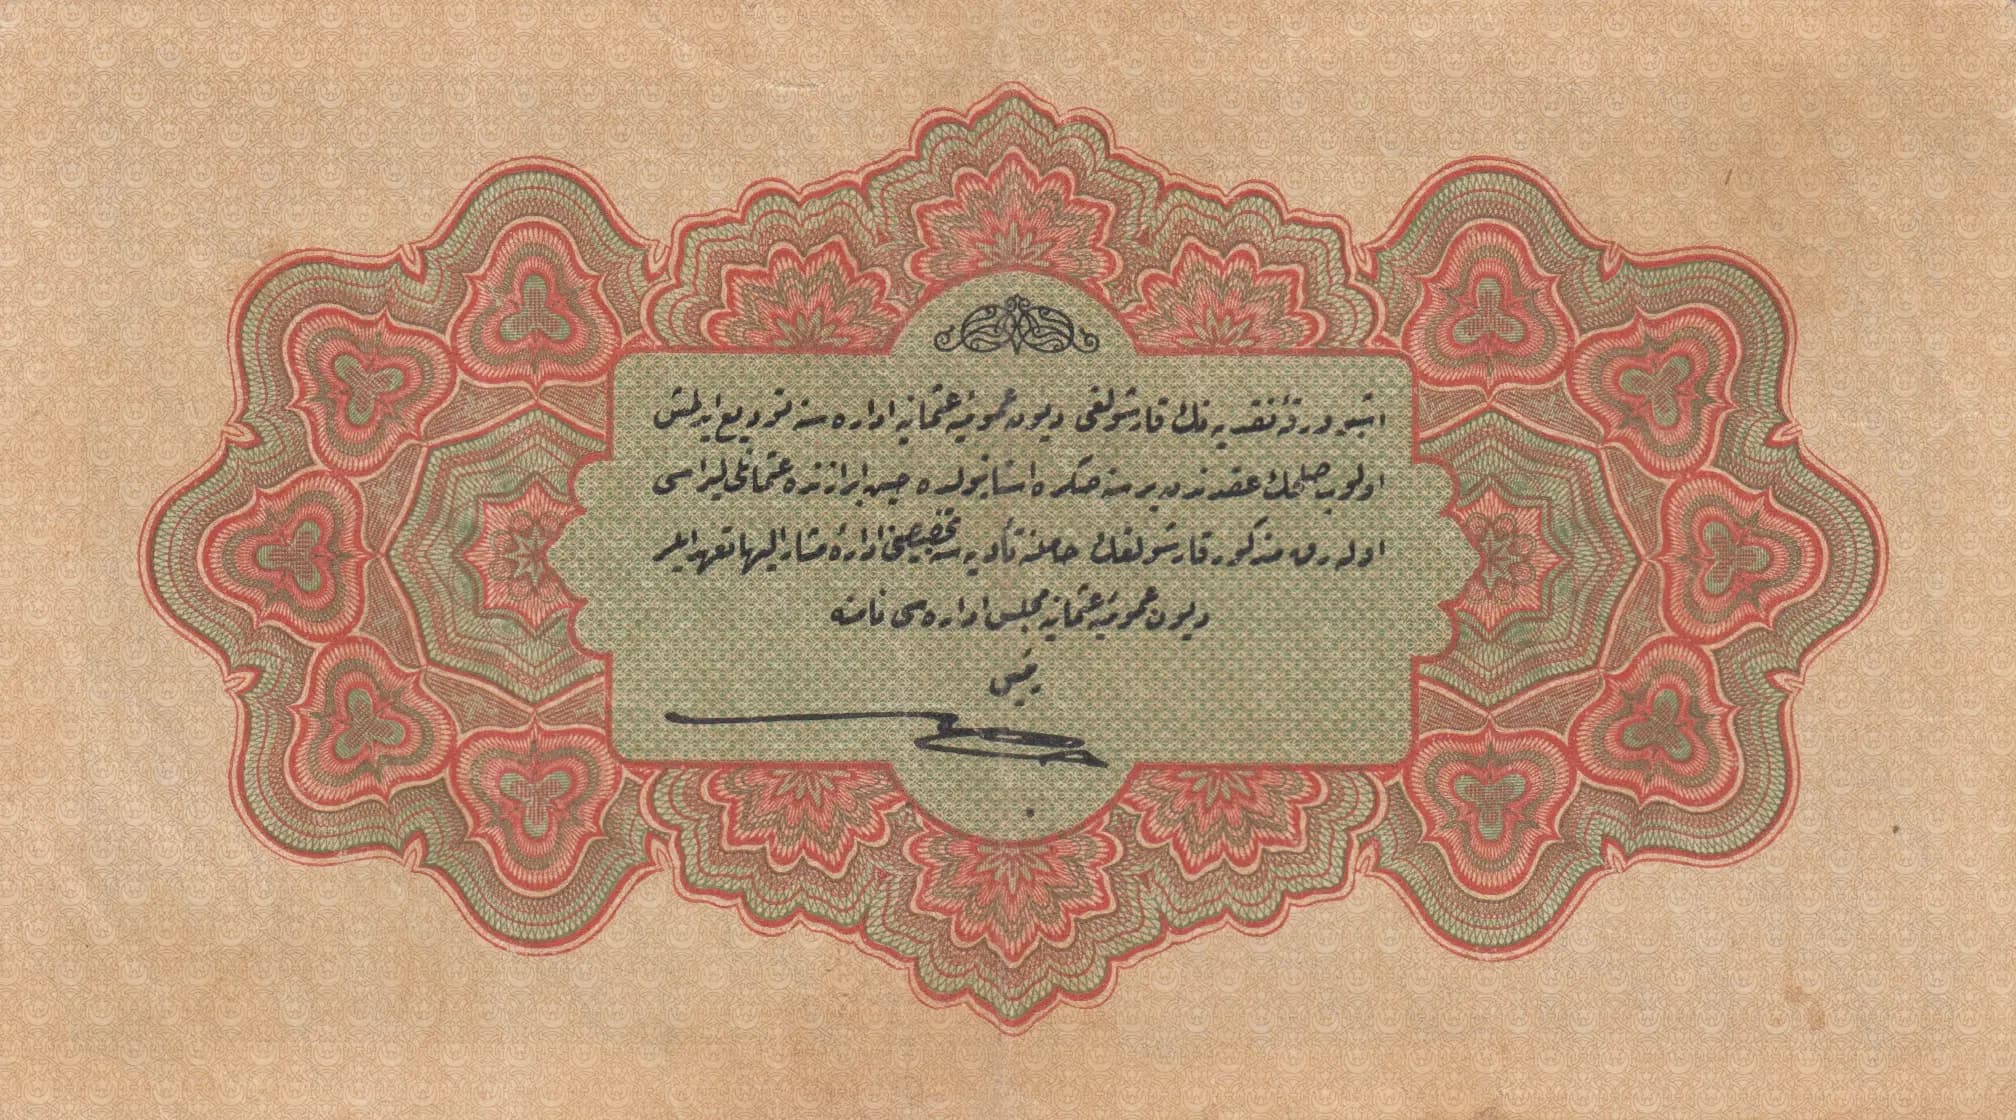 اشبو ورقهٔ نقديه نك قارشولغى ديون عموميهٔ عثمانيه اداره سنه توديع ايدلمش
اولوب صلحك عقدندن بر سنه صكره استانبولده حين ابرازنده عثمانلى ليراسى
اوله رق مذكور قارشولغك حاملنه تأديه سنه تخصيصنى ادارهٔ مشار اليها تعهد ايلر
ديون عموميهٔ عثمانيه مجلس اداره سى نامنه
رئيس